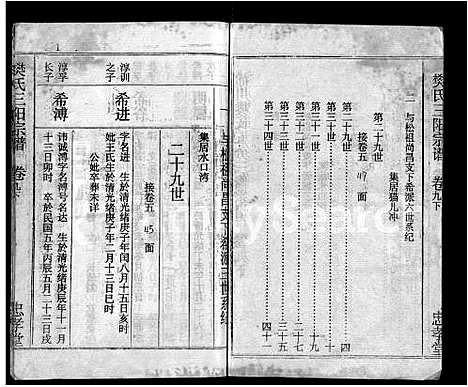 樊氏三阳宗谱 卷九下
忠孝堂
二 与松祖尚昌文下希派六世系纪
第二十九世
集居猫儿冲
接卷五 面
第三十世 四
第三十一世 十九
第三十二世
第三十三世 三十五
第三十四世 四十一
集居水口湾
接卷五 45 面
二十九世
淳训之子
希进
字名进 生於清光绪庚子年闰八月十五日亥时
妣王氏生於清光绪庚子年二月十三日巳时
公妣卒葬未详
淳孚长子
希溥
讳诚溥字名溥号名达 生於清光绪庚辰年十一月
十三日卯时 卒於民国五年丙辰五月二十三日戌
樊氏三阳宗谱 卷九下
忠孝堂